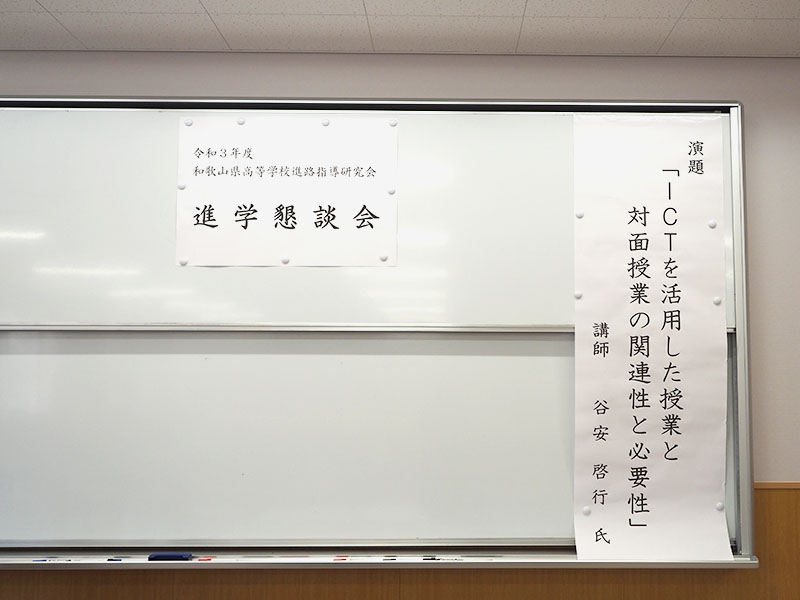 令和3年度
和歌山県高等学校進路指導研究会
進学懇談会
演題
「ICTを活用した授業と
対面授業の関連性と必要性」
講師 谷安 啓行 氏